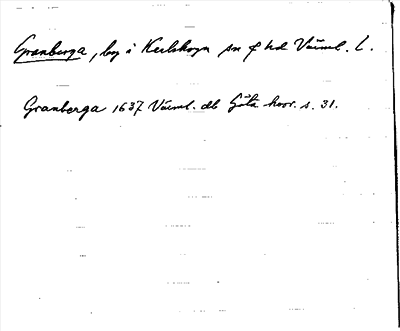 Granberga, hmg i Karlskoga sn o hd Värml. L.
Granberga 1637 Värml. db Göta hovr. s. 31.